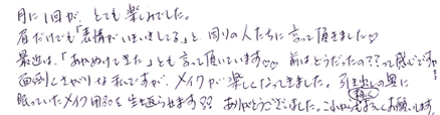 月に1回が、とても楽しみでした。
眉だけでも「表情がいきいきしてる」と周りの人たちに言って頂けました♡
最近は、「あかぬけてきた」とも言って頂いています♡♡ 前はどうだったの??って感じです
面倒くさがりな私ですが、メイクが楽しくなってきました。引き出しの奥に
眠っていたメイク用品も生き返らせます♡♡ ありがとうございました。これからもよろしくお願いします。